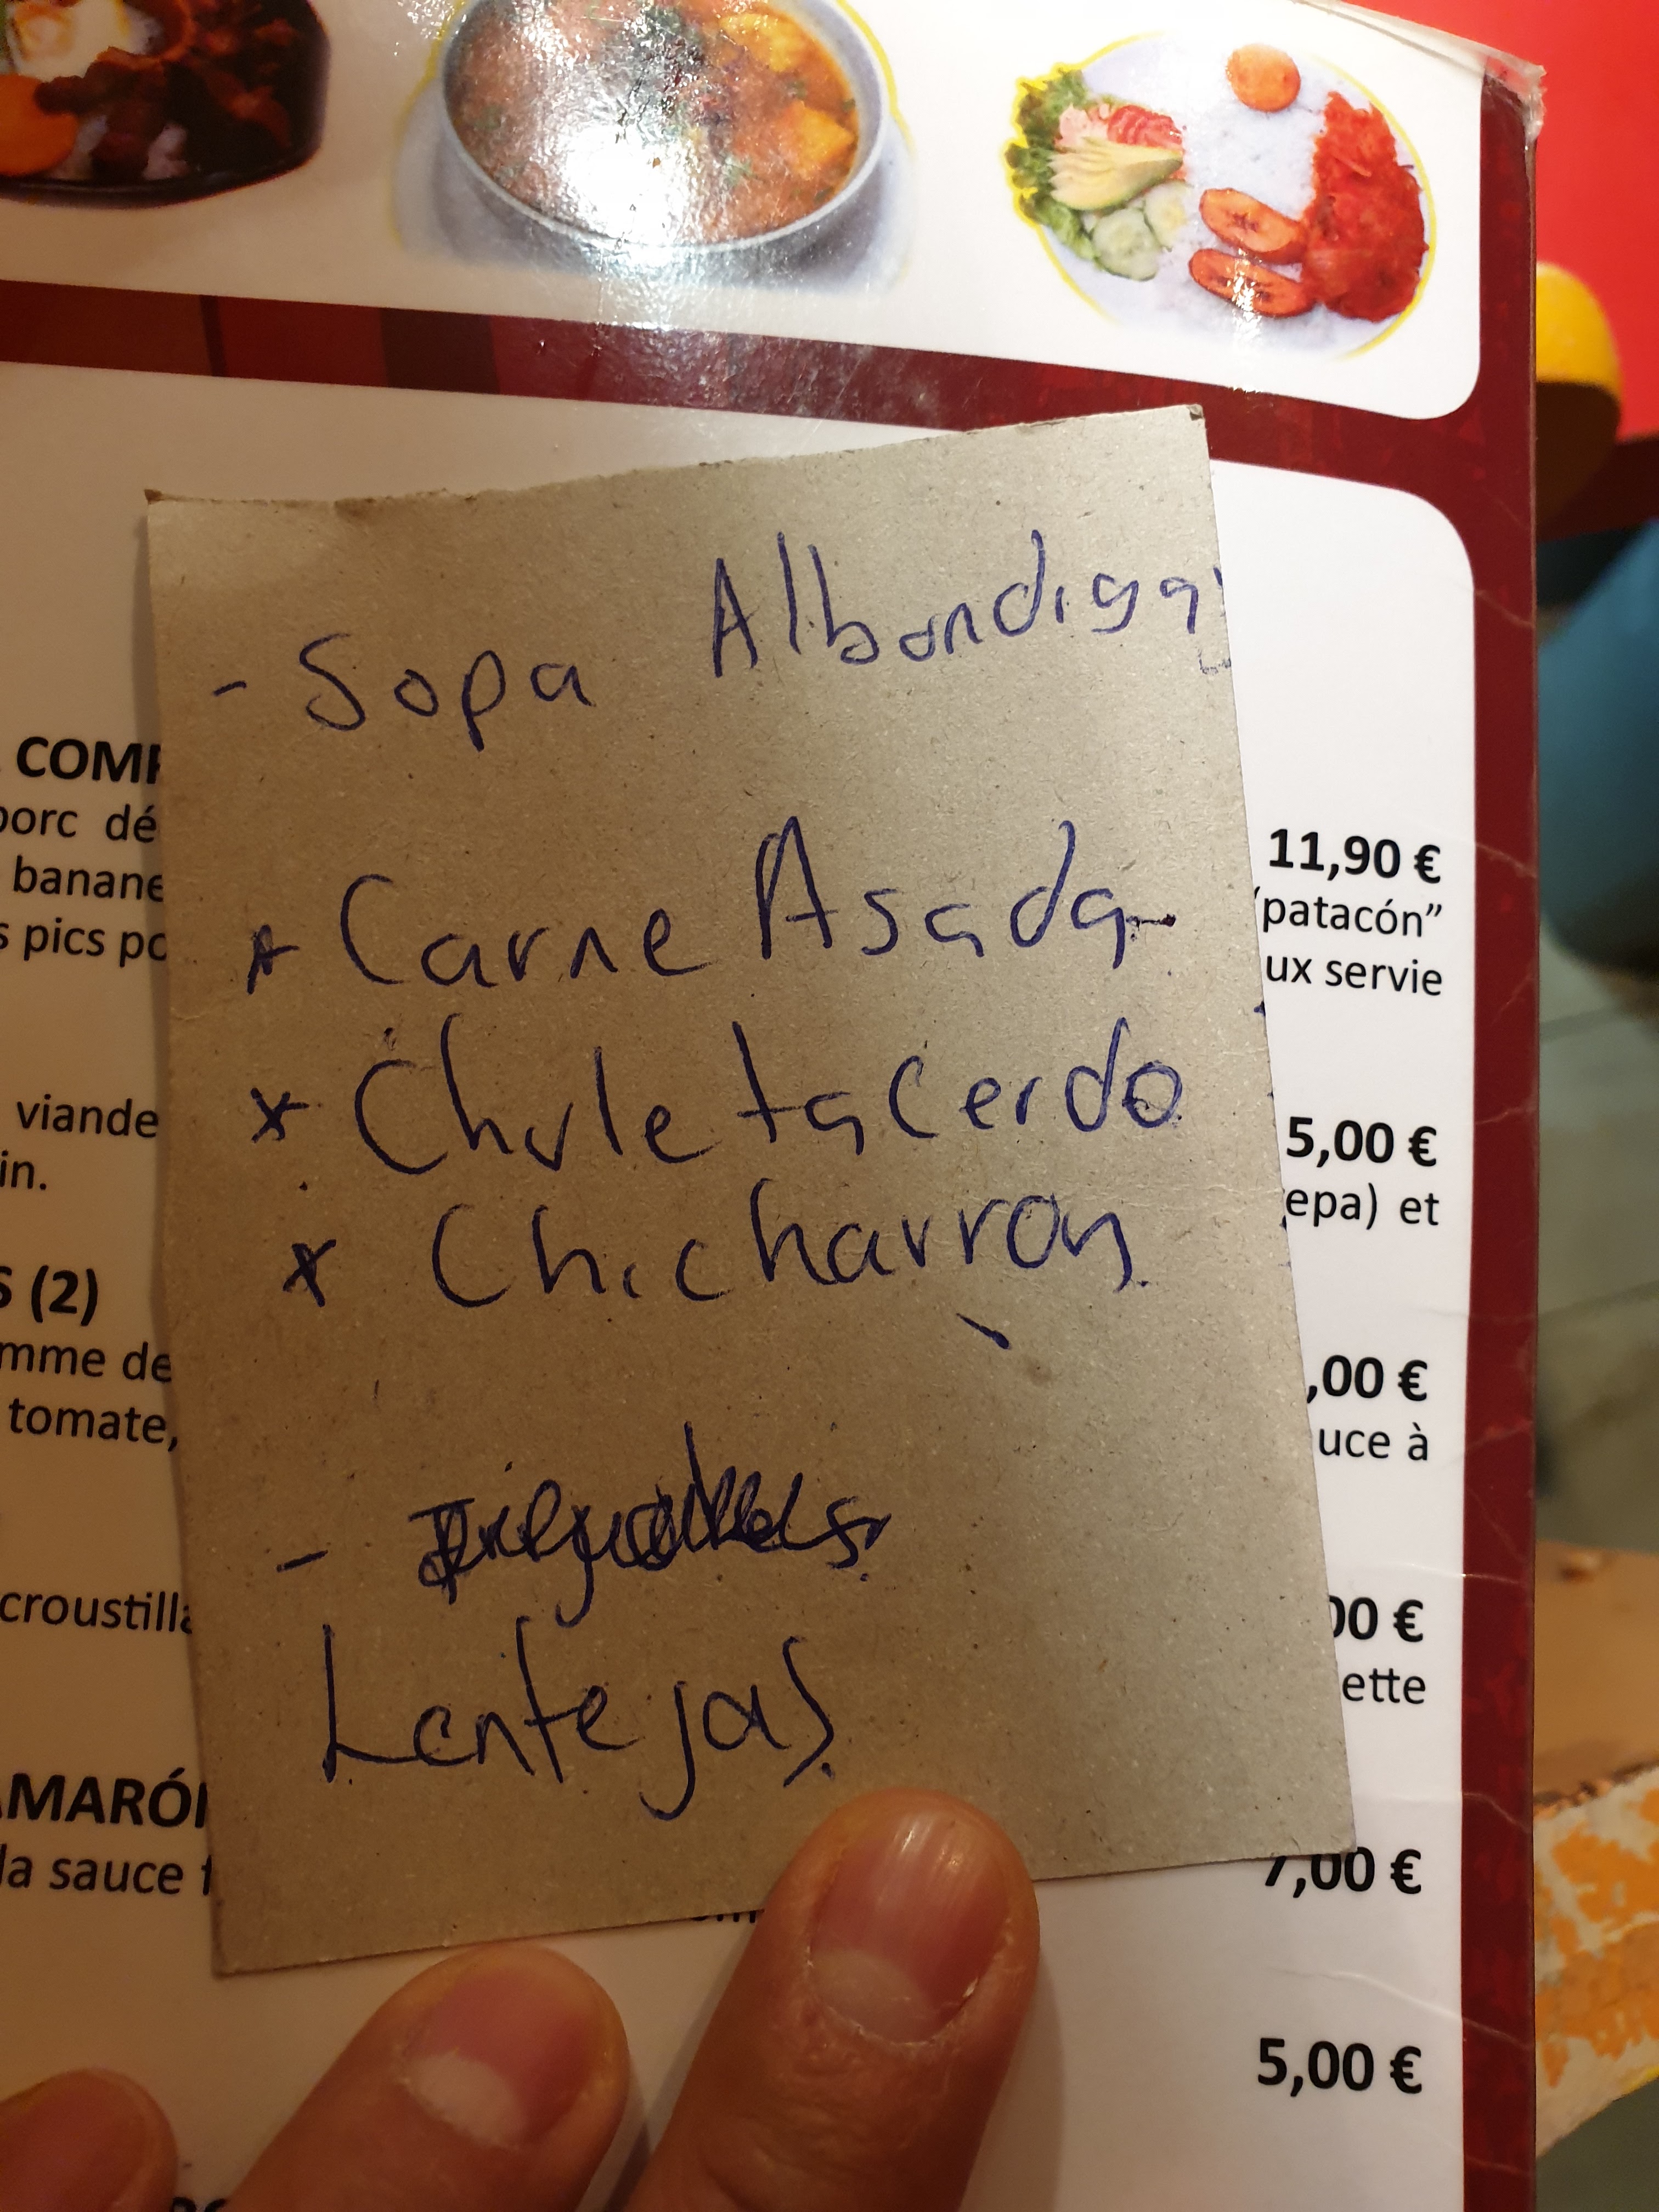 - Sopa Albondigas
* Carne Asada
x Chuleta Cerdo
x Chicharron
-
Lentejas
COMP
porc dé
banane
s pics po
viande
in.
S (2)
mme de
tomate,
croustilla
AMARÓN
la sauce
11,90 €
“patacón”
ux servie
5,00 €
epa) et
,00 €
uce à
00 €
ette
7,00 €
5,00 €